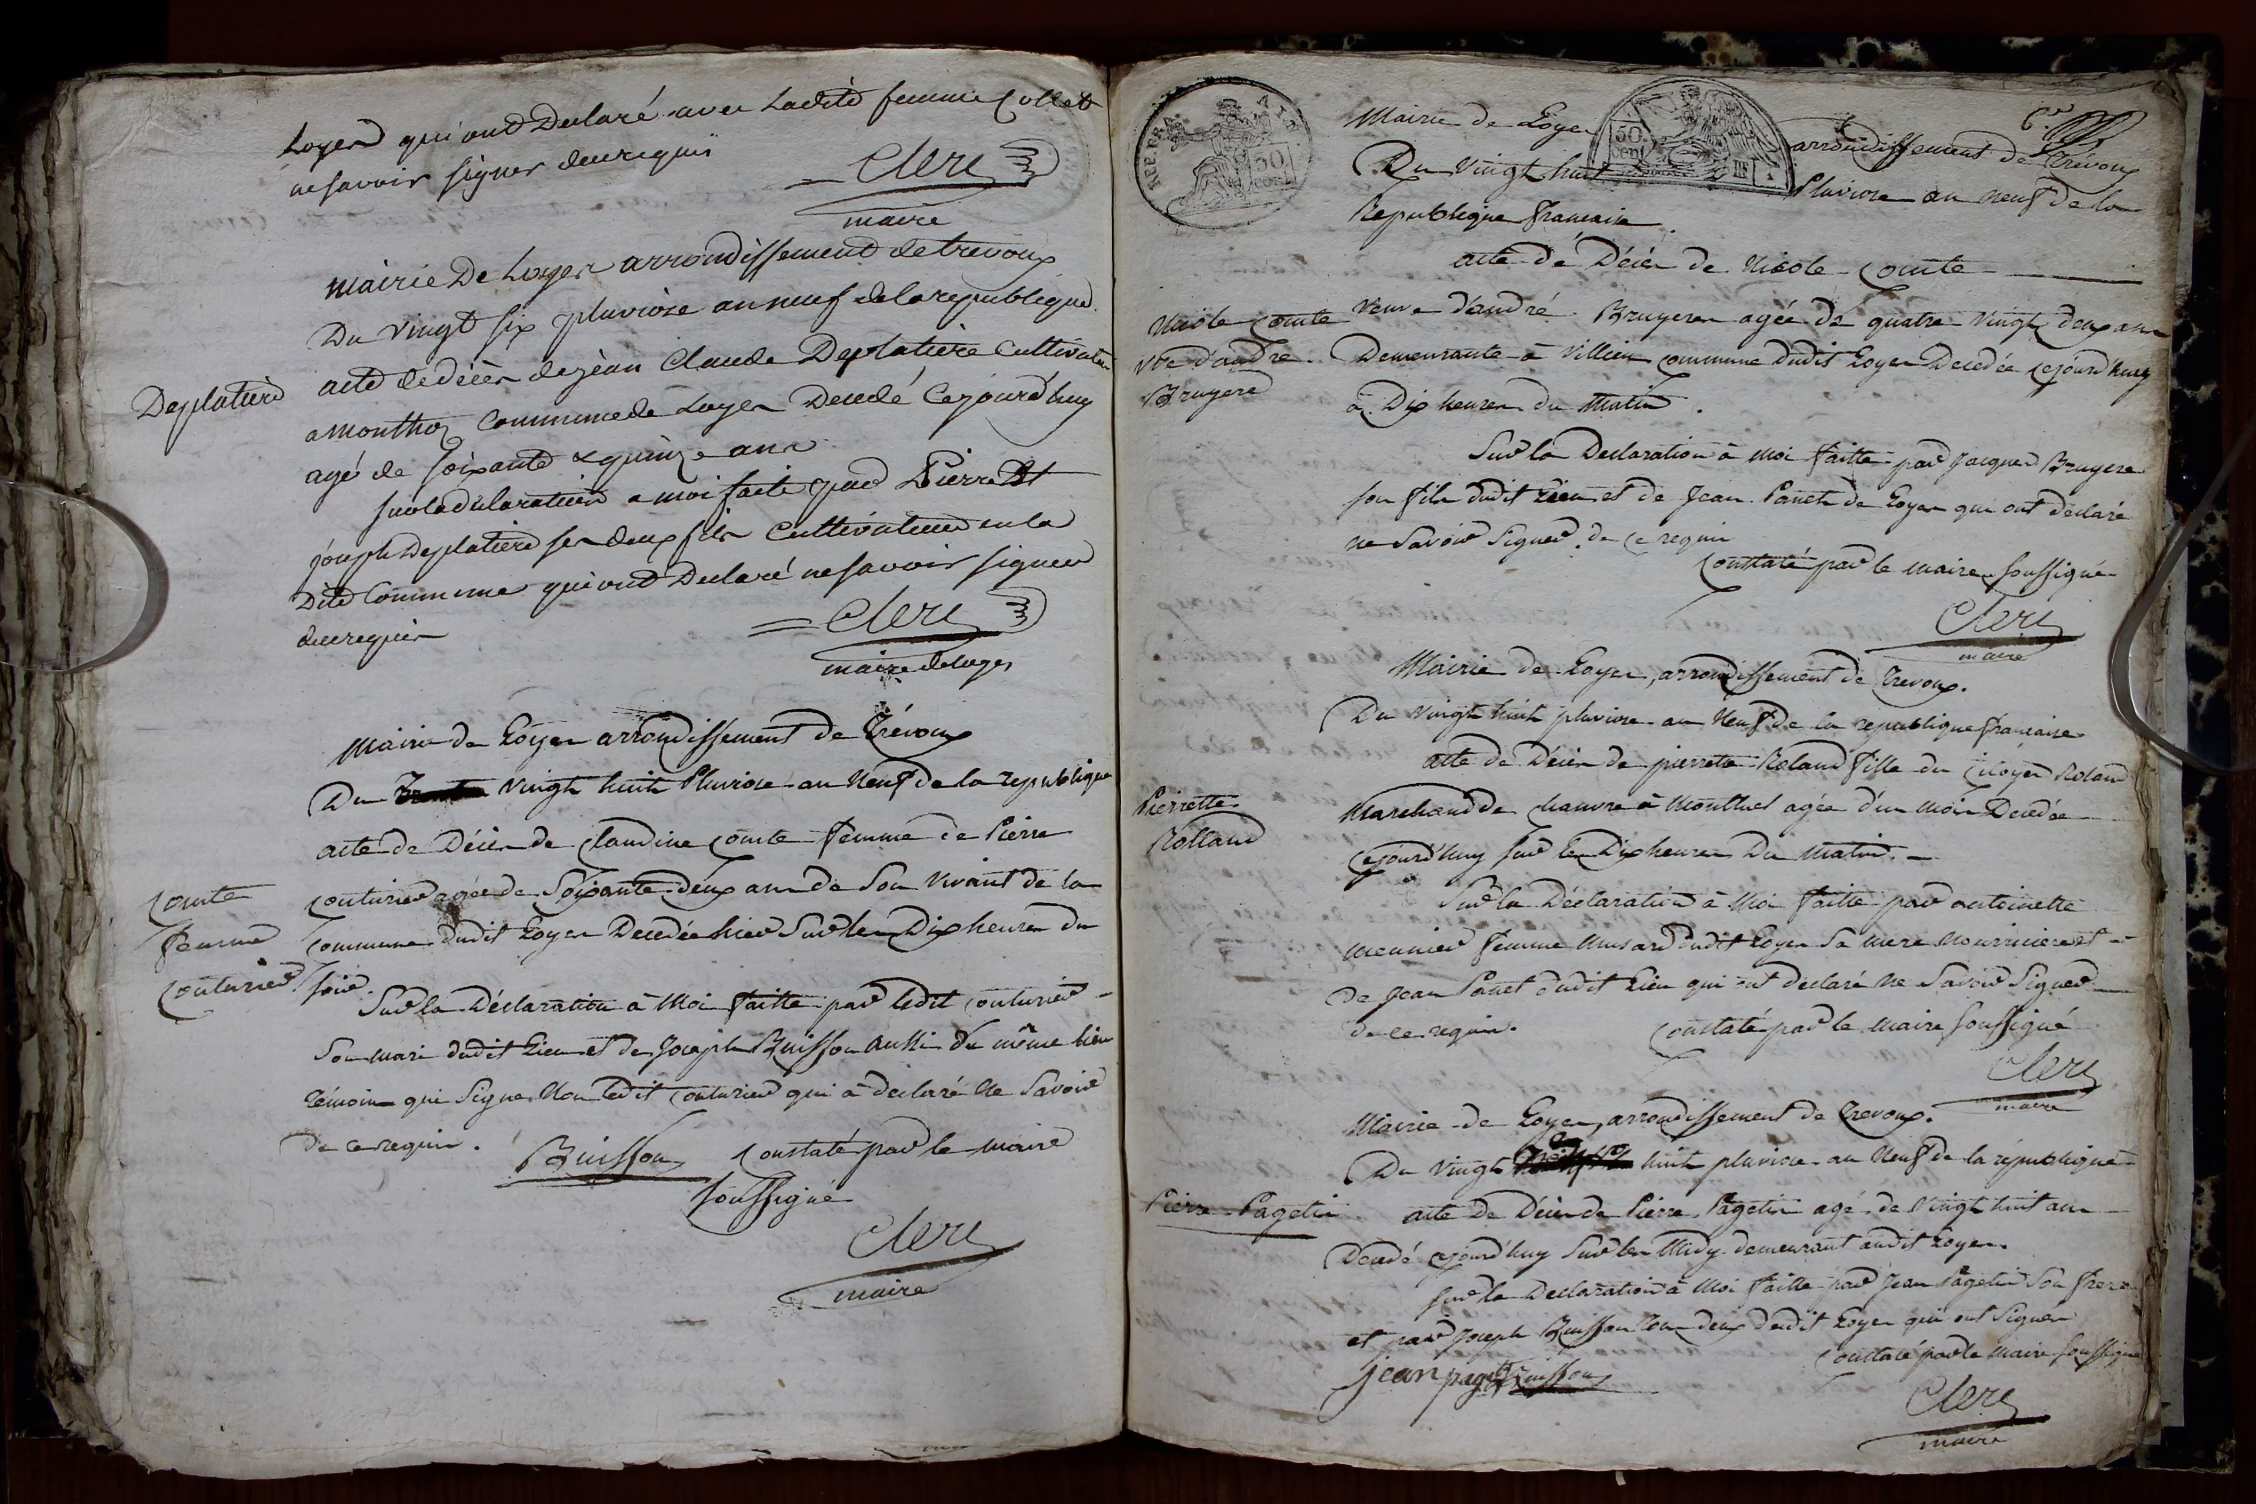 Loyes qui ont Declaré avec Ladite femme Collet
ne savoir signer deurequis
Clerc
maire
Mairie De Loyes arrondissement de trevoux
Du vingt six pluviôse an neuf de la republique
acte de décès de jean Claude Deplatiere Cultivateur
Deplatiere
a Monthoz Commune de Loyes Decedé Cejourd'huy
agé de soixante & quinze ans
sur la déclaration a moi faite par Pierre Et
joseph Deplatiere ses deux fils Cultivateurs en la
Dite Commune qui ont Declaré ne savoir signer
deurequis
Clerc
maire de loyes
Mairie de Loyes arrondissement de Trévoux
Du vingt huit Pluviose an Neuf de la republique
acte de Décès de Claudine Comte femme de Pierre
Comte
femme
Couturier
Couturier agée de Soixante deux ans de Son vivant de la
Commune dudit Loyes Decedée hier Sur les Dix heures du
soir.
Sur la Déclaration à Moi faitte par ledit Couturier
Son mari dudit Lieu et de Joseph Buisson aussi du même lieu
témoins qui Signe Non ledit Couturier qui à declaré Ne Savoir
de ce requis.
Buisson Constaté par le maire
soussigné
Clerc
maire
REP. FRA.
50 cent
50 cent
6e
Mairie de Loyes arrondissement de Trévoux
Du Vingt huit Pluviose an neuf de la
Republique francaise
acte de Décès de Nicole Comte
Nicole Comte
vve d'andre
Bruyere
Veuve d'andré Bruyeres agée de quatre vingt deux ans
Demeurante à Villieu commune dudit Loyes Decedée cejourd'huy
à Dix heures du Matin.
Sur la Declaration à moi faitte par Jacques Bruyere
son fils dudit Lieu et de Jean Panet de Loyes qui ont déclaré
ne Savoir Signer de ce requis
Constaté par le maire soussigné
Clerc
maire
Mairie de Loyes, arrondissement de Trevoux.
Du vingt huit pluviose an Neuf de la republique francaise
acte de Décès de pierrette Roland fille du Citoyen Roland
Pierrette
Rolland
Marchand de chanvre à Montluel agée d'un mois Decedée
cejourd'huy sur les Dix heures Du Matin.
Sur la Déclaration à Moi faitte par antoinette
meunier femme Musard dudit Loyes Sa mere Nourriciere et
de Jean Panet dudit Lieu qui ont declaré ne Savoir Signer
de ce requis. Constaté par le Maire soussigné
Clerc
maire
Mairie de Loyes, arrondissement de Trevoux.
Du vingt huit pluviose an Neuf de la république
Pierre Pagetin
acte de Décès de Pierre Pagetin agé de vingt huit ans
Decedé cejourd'huy Sur les Midy demeurant audit Loyes.
Sur la Declaration à Moi faitte par Jean Pagetin Son frere
et par Joseph Buisson tous deux dudit Loyes qui ont Signes
Constaté par le maire soussigné
jean paget Buisson
Clerc
maire